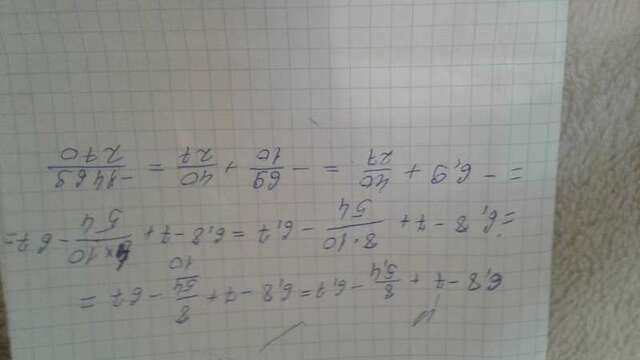 6,8 - 7 + 8/5,4 - 6,7 = 6,8 - 7 + 8/(54/10) - 67 =
= 6,8 - 7 + 8·10/54 - 6,7 = 6,8 - 7 + 8×10/54 - 67 =
= - 6,9 + 40/27 = - 69/10 + 40/27 = -1463/270